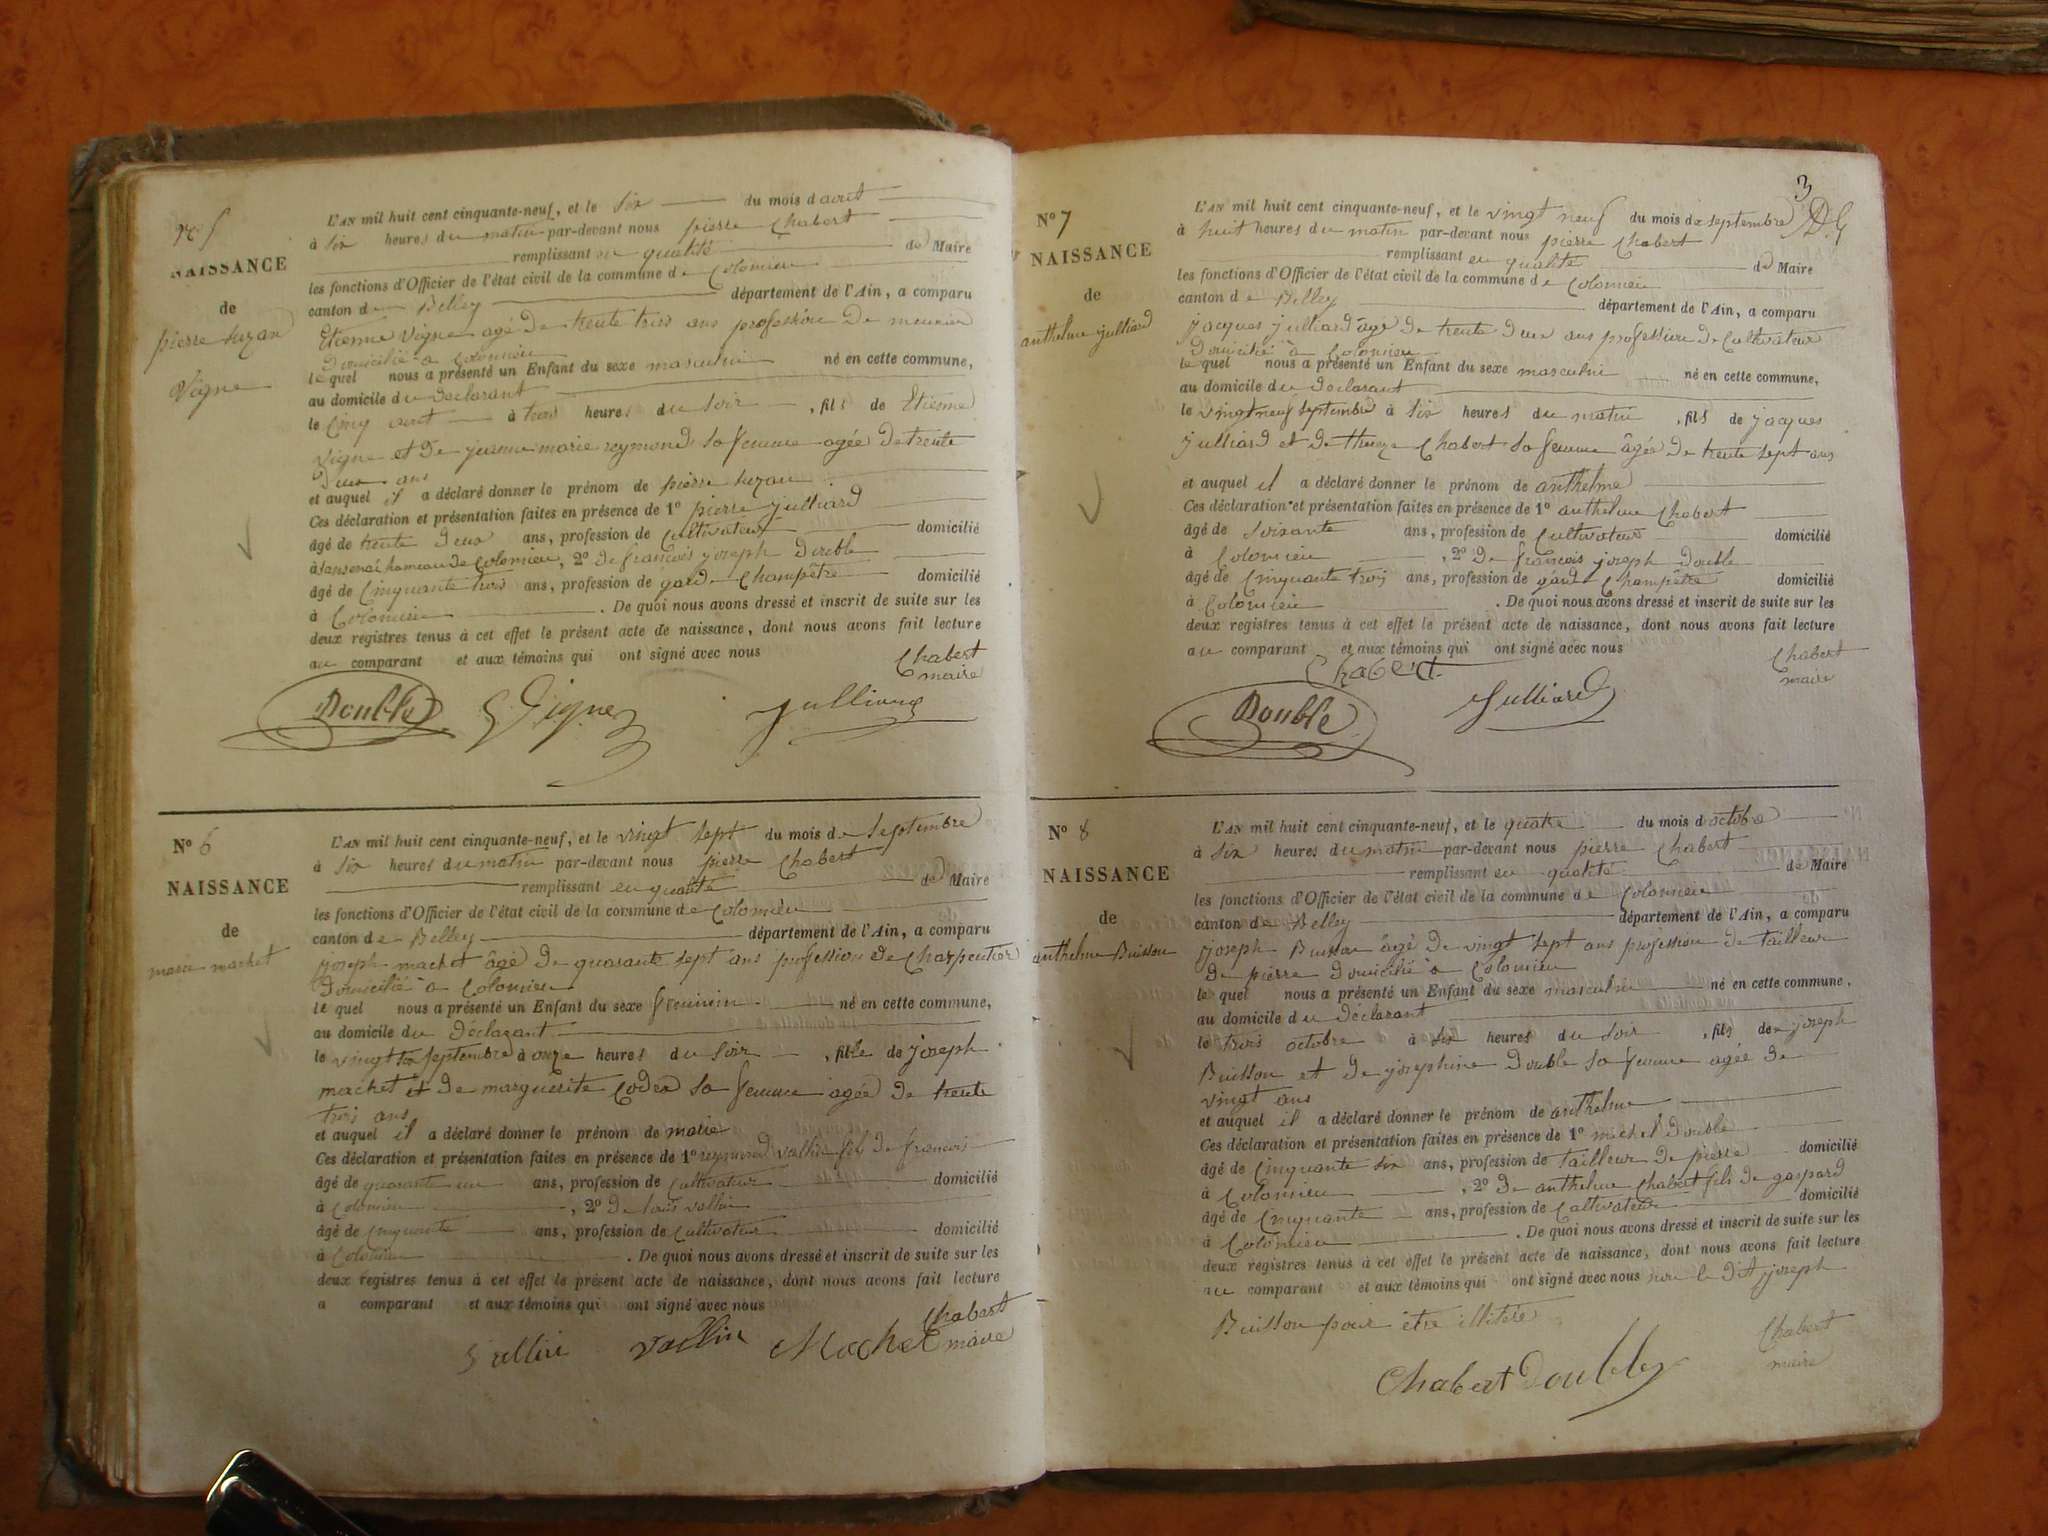 N° 5
NAISSANCE
de
pierre suzan
Vigne
L'AN mil huit cent cinquante-neuf, et le six du mois d'avril
à six heures du matin par-devant nous pierre Chabert
remplissant en qualité de Maire
les fonctions d'Officier de l'état civil de la commune de Colomieu
canton de Belley département de l'Ain, a comparu
Etienne Vigne agé de trente trois ans profession de meunier
domicilié à Colomieu
le quel nous a présenté un Enfant du sexe masculin né en cette commune,
au domicile du Déclarant
le cinq avril à trois heures du soir, fils de Etienne
Vigne et de jeanne marie reymond sa femme agée de trente
deux ans
et auquel il a déclaré donner le prénom de pierre suzan
Ces déclaration et présentation faites en présence de 1° pierre julliard
âgé de trente deux ans, profession de Cultivateur domicilié
à hameau de Colomieu, 2° de françois joseph Double
âgé de Cinquante trois ans, profession de garde Champêtre domicilié
à Colomieu. De quoi nous avons dressé et inscrit de suite sur les
deux registres tenus à cet effet le présent acte de naissance, dont nous avons fait lecture
au comparant et aux témoins qui ont signé avec nous
Chabert
maire
Double Vigne Julliard
N° 6
NAISSANCE
de
marie machet
L'AN mil huit cent cinquante-neuf, et le vingt sept du mois de Septembre
à six heures du matin par-devant nous pierre Chabert
remplissant en qualité de Maire
les fonctions d'Officier de l'état civil de la commune de Colomieu
canton de Belley département de l'Ain, a comparu
joseph machet âgé de quarante sept ans profession de Charpentier
domicilié à Colomieu
le quel nous a présenté un Enfant du sexe féminin né en cette commune,
au domicile du Déclarant
le vingt six septembre à onze heures du soir, fille de joseph
machet et de marguerite sa femme agée de trente
trois ans
et auquel il a déclaré donner le prénom de marie
Ces déclaration et présentation faites en présence de 1° reymond vallin fils de francois
âgé de quarante un ans, profession de Cultivateur domicilié
à Colomieu, 2° de louis vallin
âgé de Cinquante ans, profession de Cultivateur domicilié
à Colomieu. De quoi nous avons dressé et inscrit de suite sur les
deux registres tenus à cet effet le présent acte de naissance, dont nous avons fait lecture
a comparant et aux témoins qui ont signé avec nous
Chabert
maire
vallin vallin Machet
3
N° 7
NAISSANCE
de
anthelme julliard
L'AN mil huit cent cinquante-neuf, et le vingt neuf du mois de septembre
à huit heures du matin par-devant nous pierre Chabert
remplissant en qualité de Maire
les fonctions d'Officier de l'état civil de la commune de Colomieu
canton de Belley département de l'Ain, a comparu
jacques julliard âgé de trente deux ans profession de Cultivateur
domicilié à Colomieu
le quel nous a présenté un Enfant du sexe masculin né en cette commune,
au domicile du Déclarant
le vingt neuf septembre à six heures du matin, fils de jacques
julliard et de Chabert sa femme âgée de trente sept ans
et auquel il a déclaré donner le prénom de anthelme
Ces déclaration et présentation faites en présence de 1° anthelme Chabert
âgé de soixante ans, profession de Cultivateur domicilié
à Colomieu, 2° de françois joseph Double
âgé de Cinquante trois ans, profession de garde Champêtre domicilié
à Colomieu. De quoi nous avons dressé et inscrit de suite sur les
deux registres tenus à cet effet le présent acte de naissance, dont nous avons fait lecture
au comparant et aux témoins qui ont signé avec nous
Chabert
Chabert
maire
Double Julliard
N° 8
NAISSANCE
de
anthelme Buisson
L'AN mil huit cent cinquante-neuf, et le quatre du mois d'octobre
à six heures du matin par-devant nous pierre Chabert
remplissant en qualité de Maire
les fonctions d'Officier de l'état civil de la commune de Colomieu
canton de Belley département de l'Ain, a comparu
joseph Buisson âgé de vingt sept ans profession de tailleur
de pierre domicilié à Colomieu
le quel nous a présenté un Enfant du sexe masculin né en cette commune,
au domicile du Déclarant
le trois octobre à six heures du soir, fils de joseph
Buisson et de josephine Double sa femme agée de
vingt ans
et auquel il a déclaré donner le prénom de anthelme
Ces déclaration et présentation faites en présence de 1° michel Double
âgé de Cinquante six ans, profession de tailleur de pierre domicilié
à Colomieu, 2° de anthelme Chabert fils de gaspard
âgé de Cinquante ans, profession de Cultivateur domicilié
à Colomieu. De quoi nous avons dressé et inscrit de suite sur les
deux registres tenus à cet effet le présent acte de naissance, dont nous avons fait lecture
au comparant et aux témoins qui ont signé avec nous non le dit joseph
Buisson pour être illitéré
Chabert
maire
Chabert Double